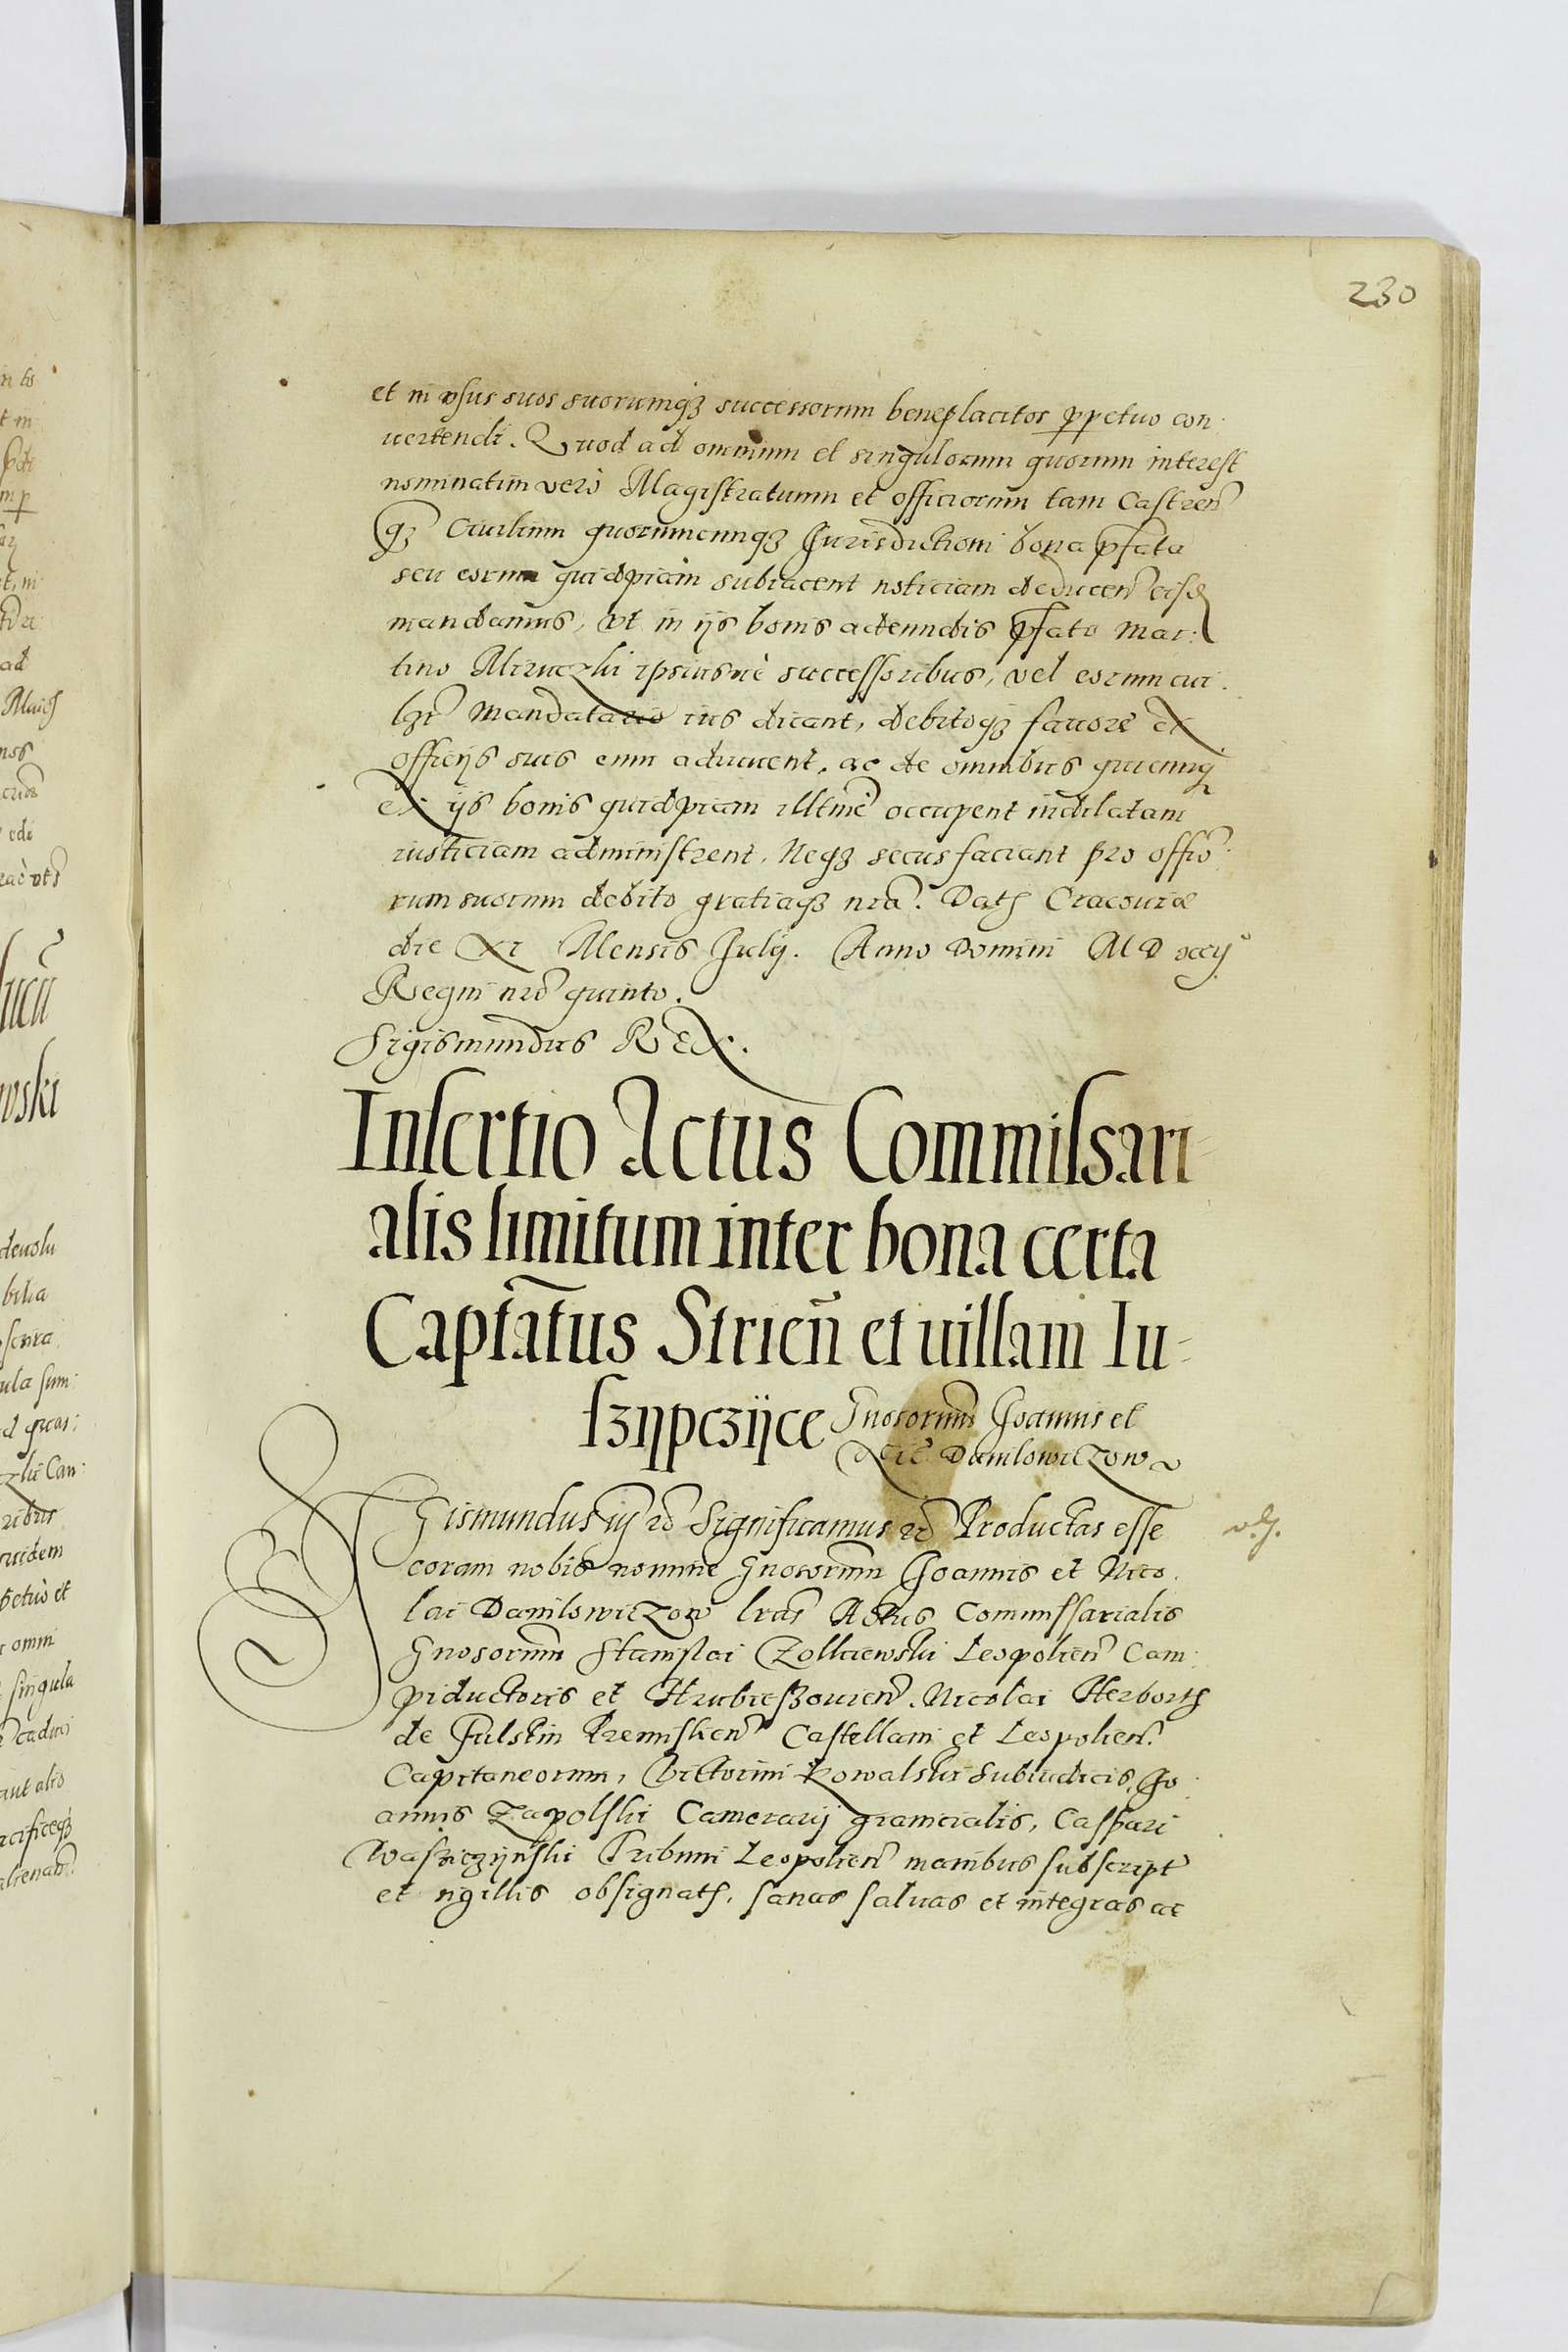 230
et in vsus suos suorumqȝ successorum beneplacitos ppetuo con
uertendi. Quod ad omnium et singulorum quorum interest
nominatim verò Magistratuum et officiorum tam Castren
qȝ Ciuilium quorumcunqȝ Jurisdictioni bona pfata
seu eorum quidpiam subiacent noticiam deducen eisd
mandamus, vt in ijs bonis adeundis pfato Mar:
tino ipsiusuè successoribus, vel eorum cui
lʒt Mandatario ius dicant, debitoqȝ fauore ex
officijs suis eum adiuuent, ac de omnibus quicunq
ex ijs bonis quidpiam illtmè occupent indilatam
iusticiam administrent. Neqȝ secus faciant pro offio
rum suorum debito gratiaqȝ nra. Dats Cracouiæ
die XI Mensis Julij. Anno Domini MD xcij°
Regni nro quinto.
Sigismundus REX.
Insertio Actus Commissari-
alis limitum inter bona certa
Captatus Strien et uillam Iu-
szijpczijce Gnosorum Joannis et
Nic Danilowiczow
Sigismundus iij rc Significamus rc Productas esse
v.g.
coram nobis nomine Gnosorum Joannis et Nico
lai Danilowiczow lras Actus Commissarialis
Gnosorum Stanislai Zolkiewski Leopolien Cam
piductoris et Hrubieszouien. Nicolai Herborth
de Fulstin Premislien Castellani et Leopolien
Capitaneorum, Victorini Kowalski Subiudicis, Jo
annis Zapolski Camerarij granicialis, Caspari
Wasziczijnski Tribuni Leopolien manibus subscript
et sigillis obsignats, sanas saluas et integras ac